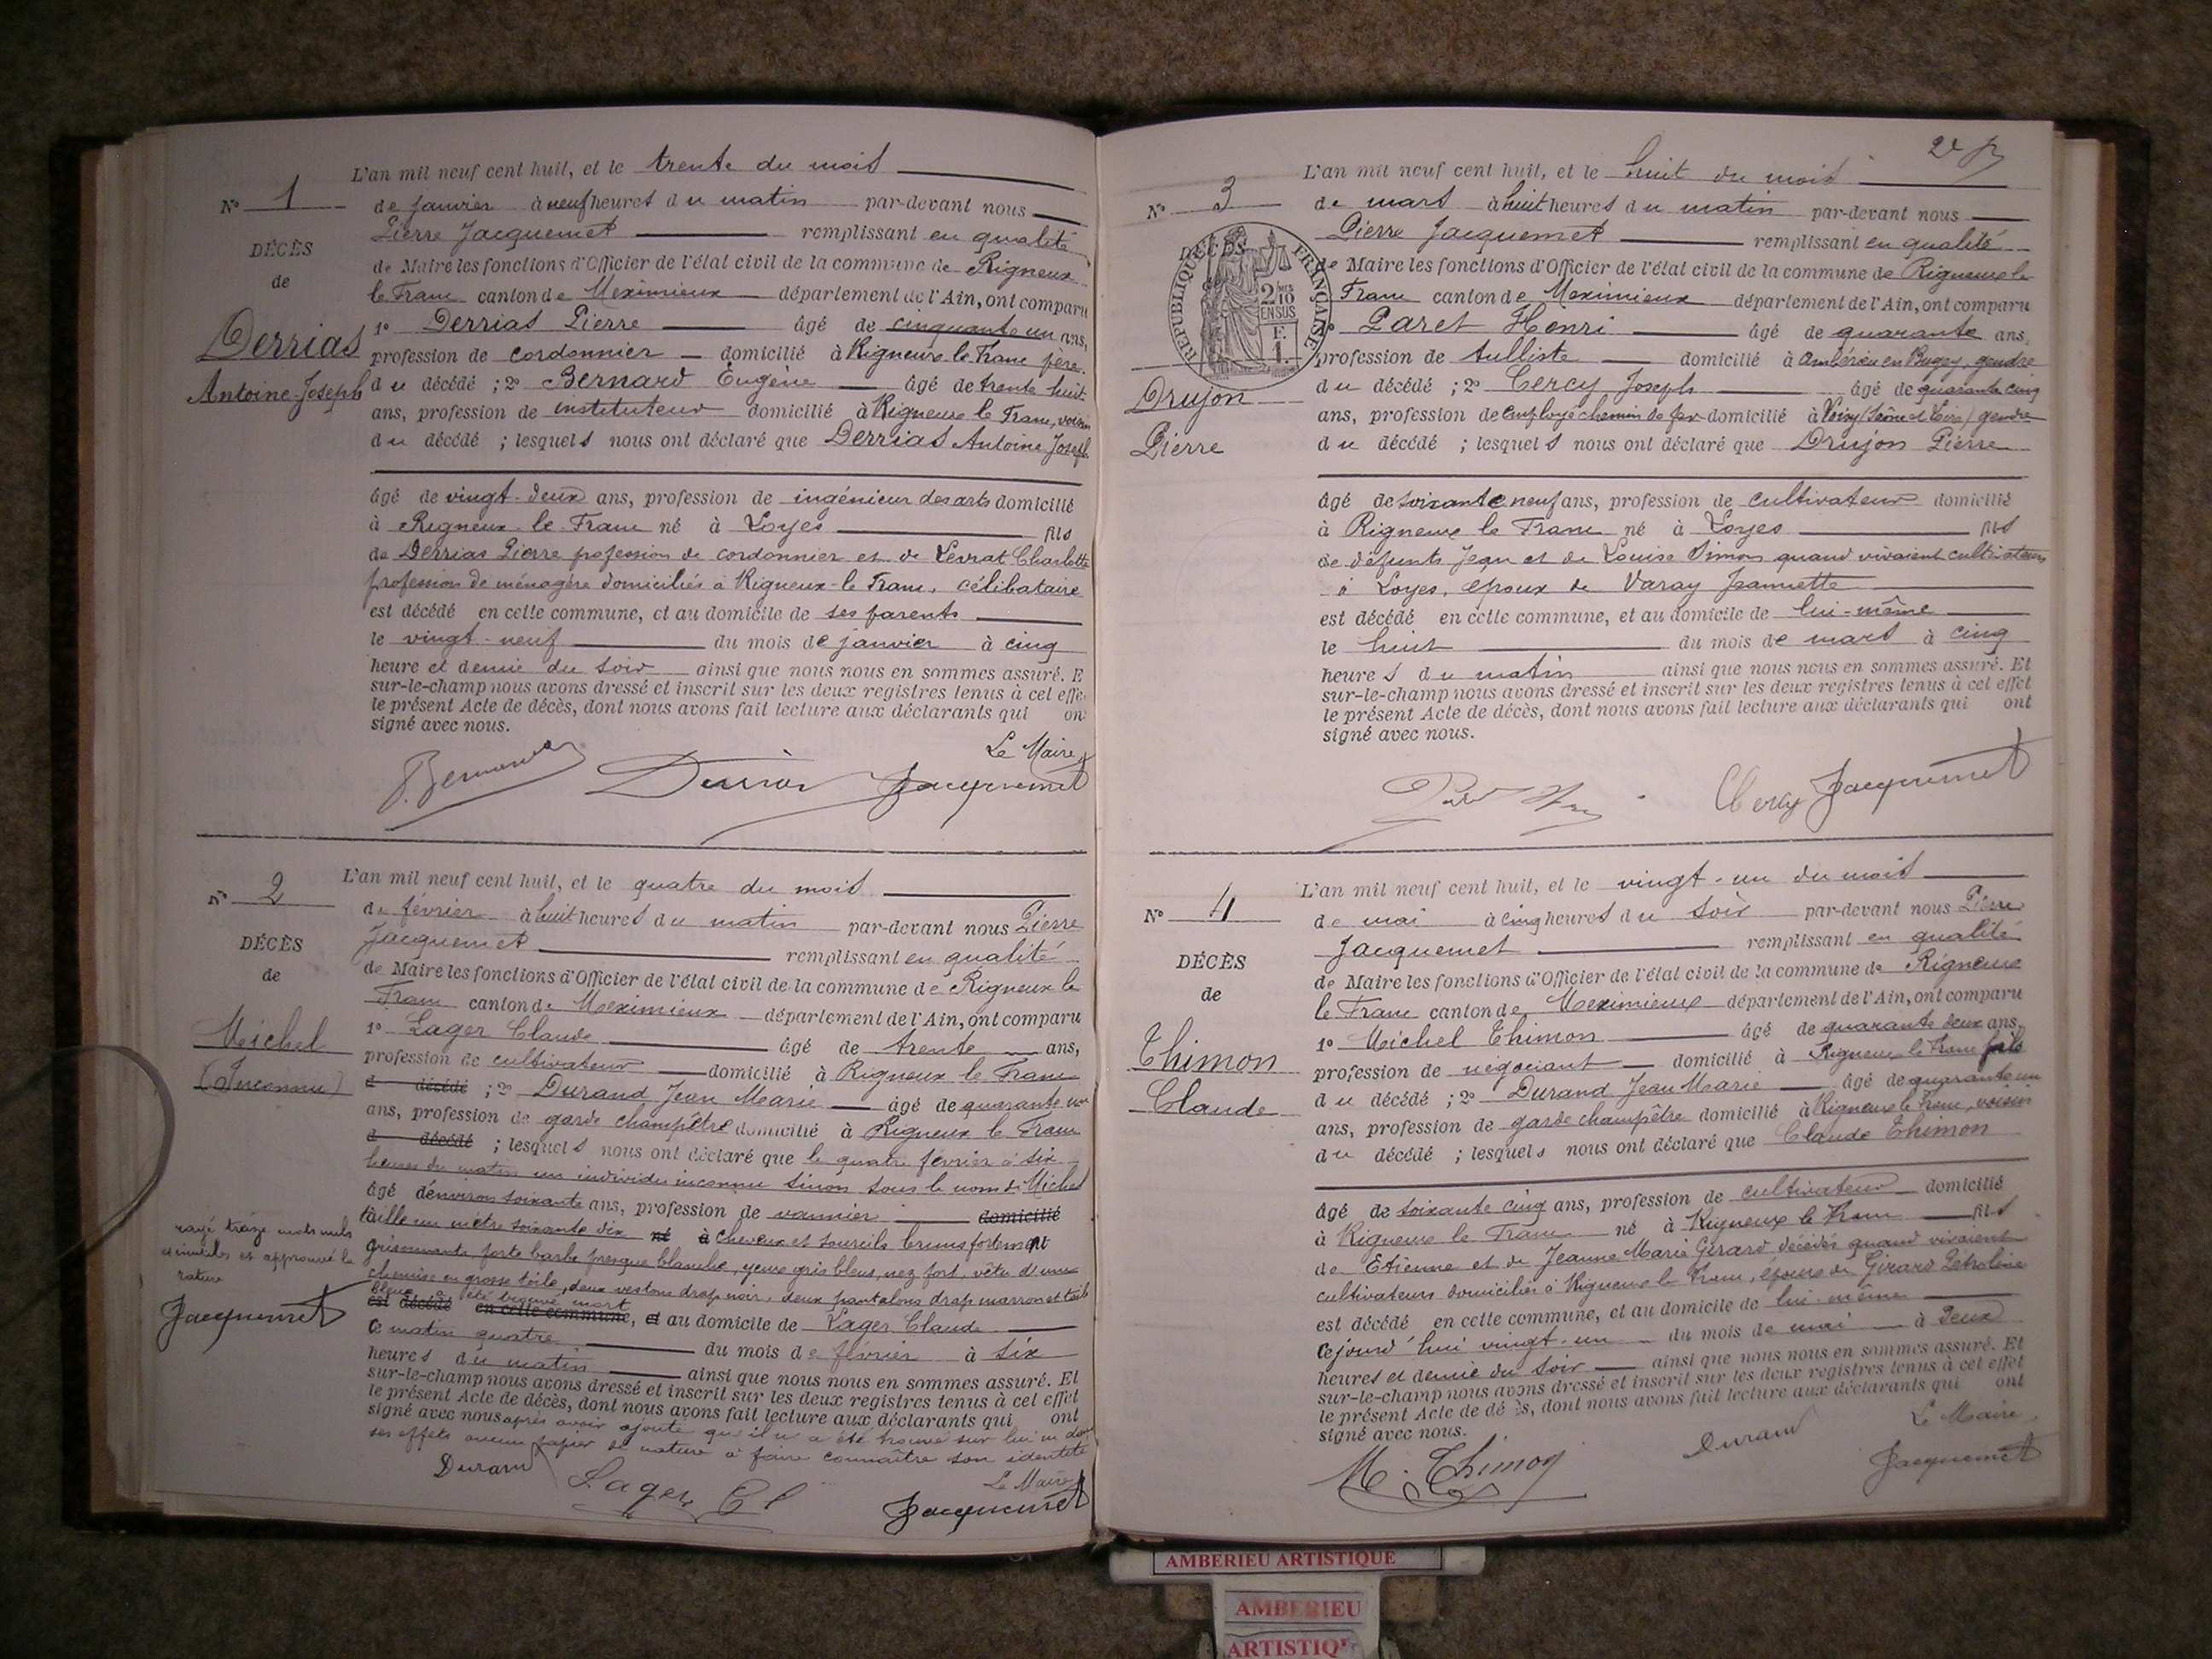 L'an mil neuf cent huit, et le trente du mois
N° 1
de janvier à neuf heures du matin par-devant nous
Pierre Jacquemet remplissant en qualité
DÉCÈS
de Maire les fonctions d'Officier de l'état civil de la commune de Rigneux
de
le Franc canton de Meximieux département de l'Ain, ont comparu
Derrias
1° Derrias Pierre âgé de cinquante un ans,
profession de cordonnier domicilié à Rigneux le Franc père
Antoine-Joseph
du décédé ; 2° Bernard Eugène âgé de trente huit
ans, profession de instituteur domicilié à Rigneux le Franc, voisin
du décédé ; lesquels nous ont déclaré que Derrias Antoine Joseph
âgé de vingt-deux ans, profession de ingénieur des arts domicilié
à Rigneux-le-Franc né à Loyes fils
de Derrias Pierre profession de cordonnier et de Levrat Charlotte
profession de ménagère domiciliés à Rigneux-le Franc, célibataire
est décédé en cette commune, et au domicile de ses parents
le vingt-neuf du mois de janvier à cinq
heure et demie du soir ainsi que nous nous en sommes assuré. E
sur-le-champ nous avons dressé et inscrit sur les deux registres tenus à cet effe
le présent Acte de décès, dont nous avons fait lecture aux déclarants qui on
signé avec nous.
Le Maire
Bernard Derrias Jacquemet
L'an mil neuf cent huit, et le quatre du mois
N° 2
de février à huit heures du matin par-devant nous Pierre
Jacquemet remplissant en qualité
DÉCÈS
de Maire les fonctions d'Officier de l'état civil de la commune de Rigneux le
de
Franc canton de Meximieux département de l'Ain, ont comparu
Michel
1° Lager Claude âgé de trente ans,
profession de cultivateur domicilié à Rigneux le Franc
(Inconnu)
d décédé ; 2° Durand Jean Marie âgé de quarante un
ans, profession de garde champêtre domicilié à Rigneux le Franc
d décédé ; lesquels nous ont déclaré que le quatre février à six
heures du matin un individu inconnu sinon sous le nom de Michel
âgé d'environ soixante ans, profession de vannier domicilié
taille un mètre soixante dix né à cheveux et sourcils bruns fortement
grisonnants, forte barbe presque blanche, yeux gris bleus, nez fort, vêtu d'une
chemise en grosse toile, deux vestons drap noir, deux pantalons drap marron et toile
bleue a été trouvé mort
est décédé en cette commune, et au domicile de Lager Claude
rayé treize mots nuls
et inutiles et approuvé la
rature
Jacquemet
Ce matin quatre du mois de février à six
heures du matin ainsi que nous nous en sommes assuré. Et
sur-le-champ nous avons dressé et inscrit sur les deux registres tenus à cet effet
le présent Acte de décès, dont nous avons fait lecture aux déclarants qui ont
signé avec nous après avoir ajouté qu'il n'a été trouvé sur lui ni dans
ses effets aucun papier de nature à faire connaître son identité
Le Maire
Durand Lager Cl Jacquemet
L'an mil neuf cent huit, et le huit du mois
N° 3
de mars à huit heures du matin par-devant nous
Pierre Jacquemet remplissant en qualité
RÉPUBLIQUE FRANÇAISE
DÉCÈS
2 10
EN SUS
F.
1.
de Maire les fonctions d'Officier de l'état civil de la commune de Rigneux le
Franc canton de Meximieux département de l'Ain, ont comparu
Paret Henri âgé de quarante ans,
profession de tulliste domicilié à Ambérieu en Bugey, gendre
Drujon
du décédé ; 2° Cercy Joseph âgé de quarante cinq
ans, profession de employé chemin de fer domicilié à (Saône et Loire) gendre
Pierre
du décédé ; lesquels nous ont déclaré que Drujon Pierre
âgé de soixante neuf ans, profession de cultivateur domicilié
à Rigneux le Franc né à Loyes fils
de défunts Jean et de Louise Simon quand vivaient cultivateurs
à Loyes, époux de Varay Jeannette
est décédé en cette commune, et au domicile de lui-même
le huit du mois de mars à cinq
heures du matin ainsi que nous nous en sommes assuré. Et
sur-le-champ nous avons dressé et inscrit sur les deux registres tenus à cet effet
le présent Acte de décès, dont nous avons fait lecture aux déclarants qui ont
signé avec nous.
Jacquemet
L'an mil neuf cent huit, et le vingt-un du mois
N° 4
de mai à cinq heures du soir par-devant nous Pierre
Jacquemet remplissant en qualité
DÉCÈS
de Maire les fonctions d'Officier de l'état civil de la commune de Rigneux
de
le Franc canton de Meximieux département de l'Ain, ont comparu
Thimon
1° Michel Thimon âgé de quarante deux ans,
profession de négociant domicilié à Rigneux le Franc fils
Claude
du décédé ; 2° Durand Jean Marie âgé de quarante un
ans, profession de garde champêtre domicilié à Rigneux le Franc, voisin
du décédé ; lesquels nous ont déclaré que Claude Thimon
âgé de soixante cinq ans, profession de cultivateur domicilié
à Rigneux le Franc né à Rigneux le Franc fils
de Etienne et de Jeanne Marie Girard décédés quand vivaient
cultivateurs domiciliés à Rigneux le Franc, époux de Girard
est décédé en cette commune, et au domicile de lui-même
Cejourd'hui vingt-un du mois de mai à deux
heures et demie du soir ainsi que nous nous en sommes assuré. Et
sur-le-champ nous avons dressé et inscrit sur les deux registres tenus à cet effet
le présent Acte de dé ès, dont nous avons fait lecture aux déclarants qui ont
signé avec nous.
Le Maire
M. Thimon Durand Jacquemet
AMBERIEU ARTISTIQUE
AMBERIEU
ARTISTIQ